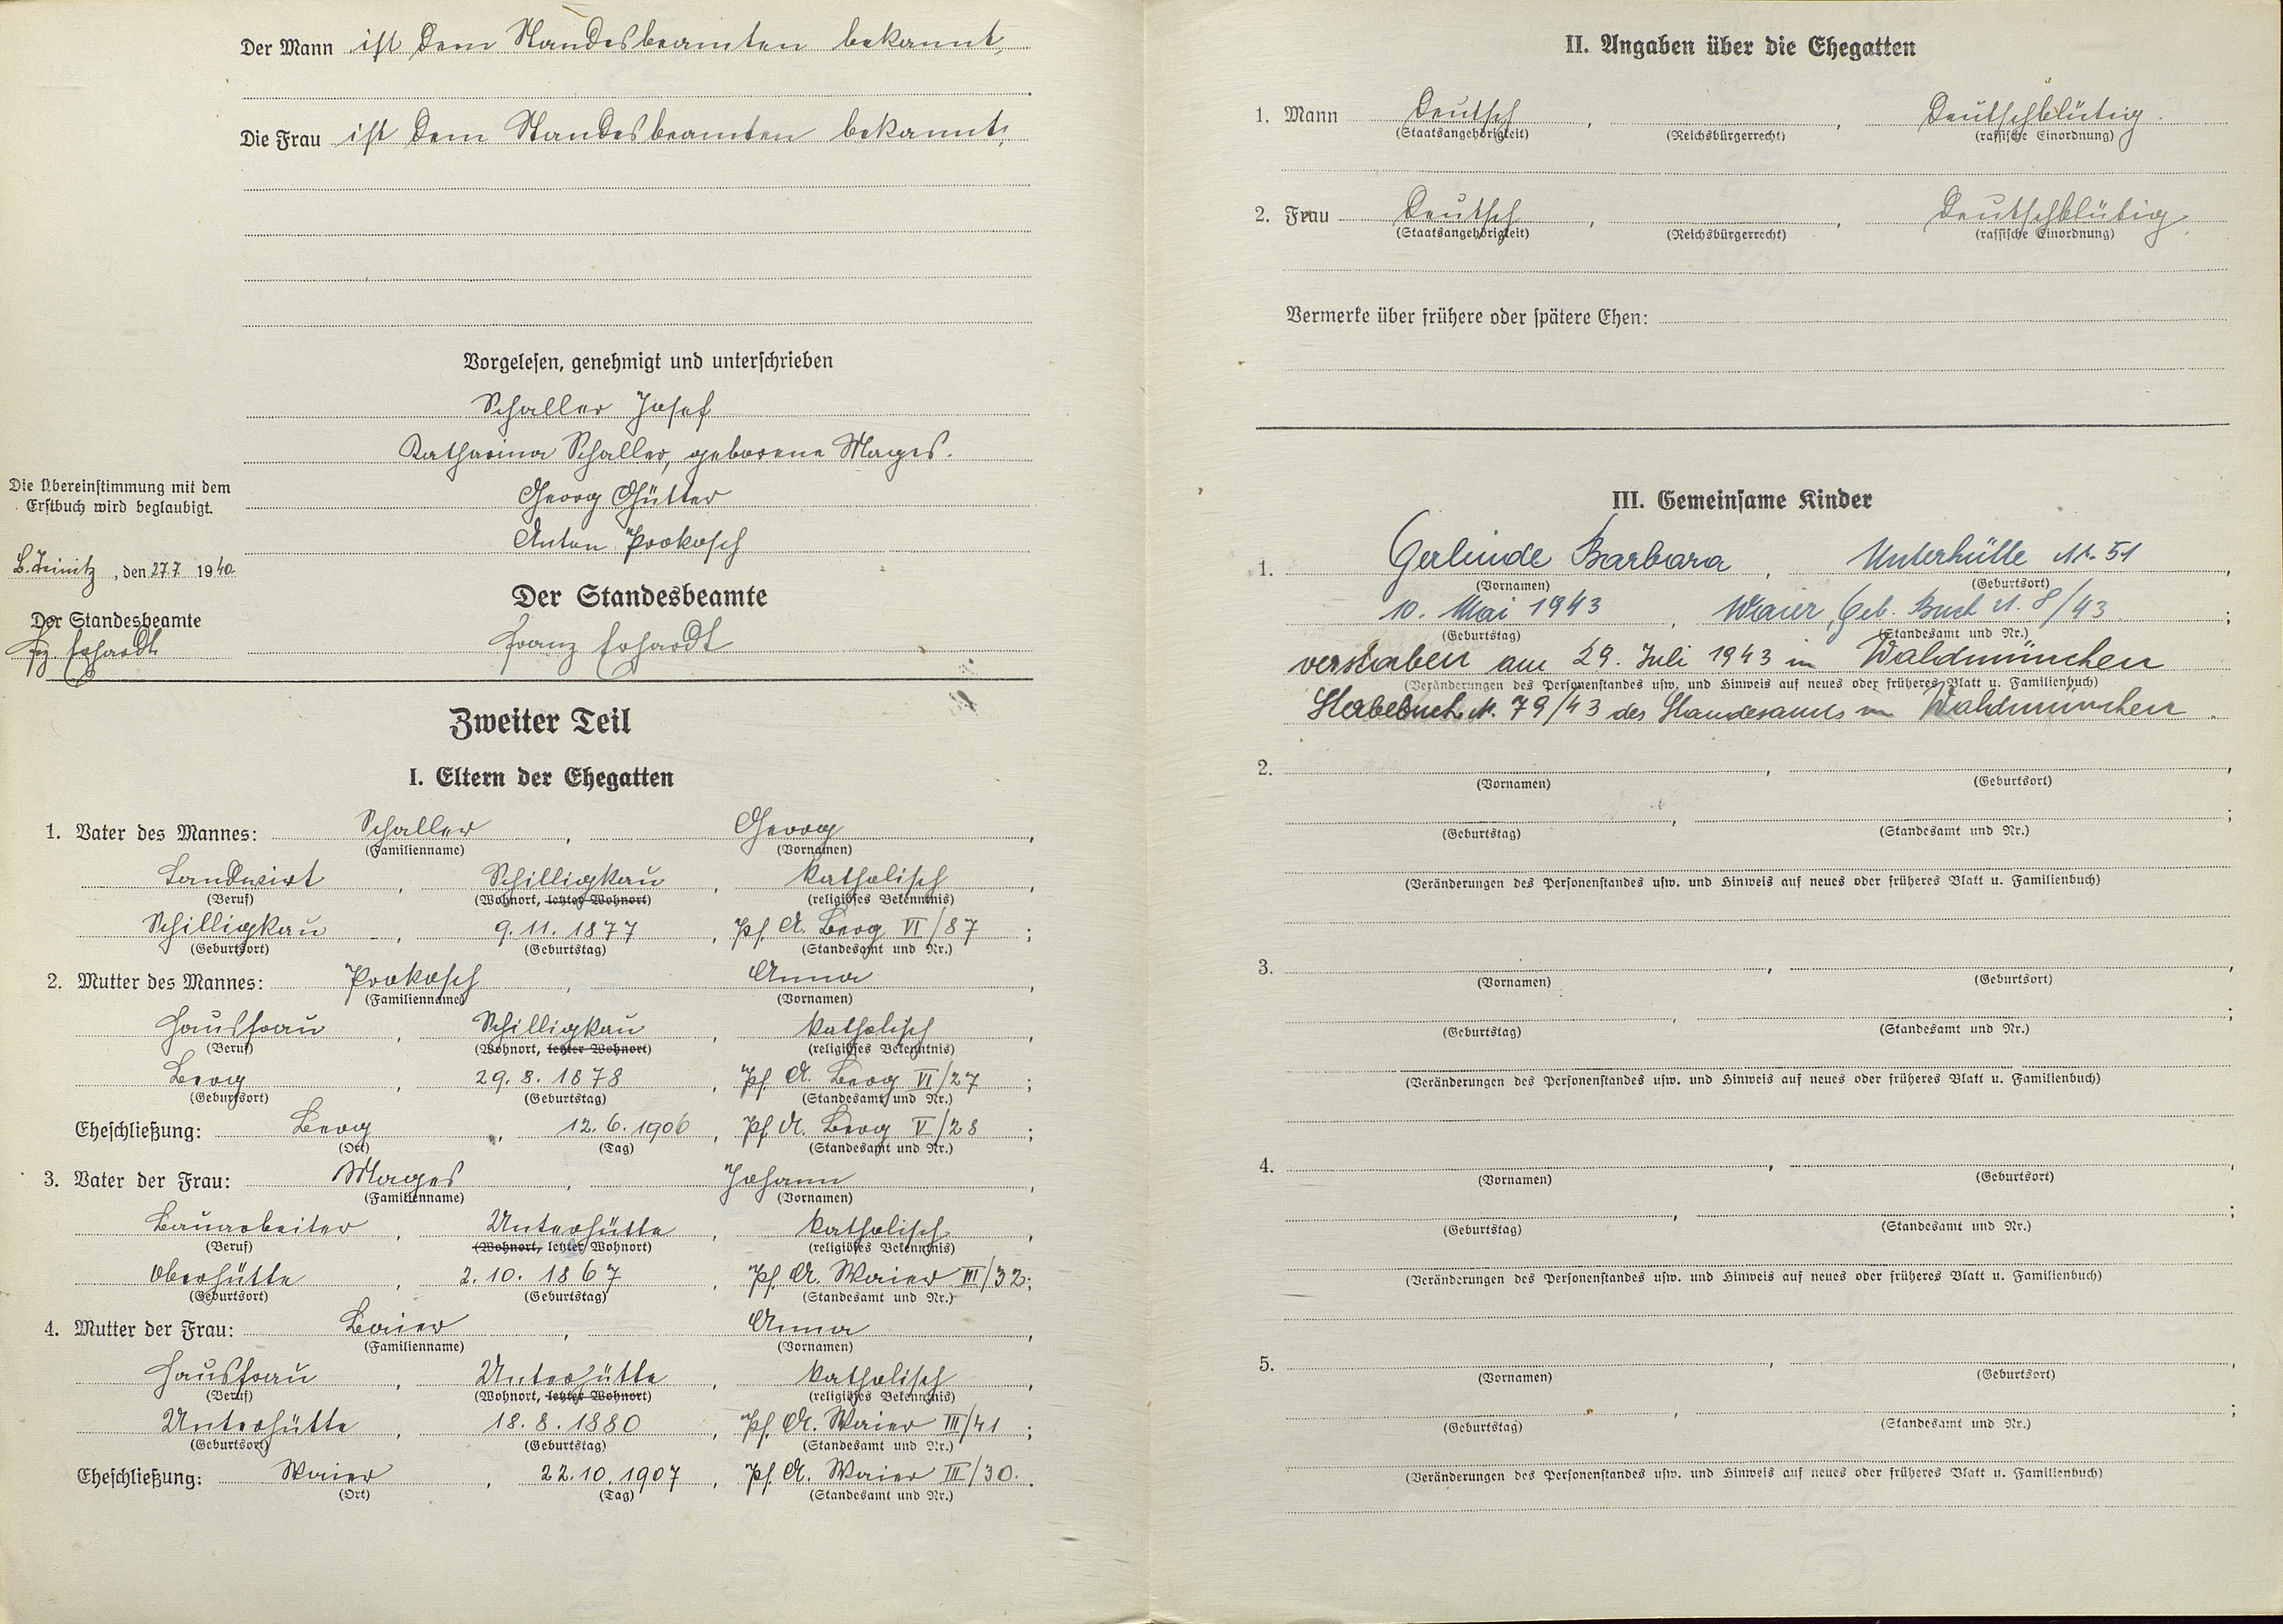 Der Mann ist dem Standesbeamten bekannt,
Die Frau ist dem Standesbeamten bekannt,
Vorgelesen, genehmigt und unterschrieben
Schaller Josef
Katharina Schaller, geborene Mages.
Georg Gütter
Anton Prokosch
Die Übereinstimmung mit dem
Erstbuch wird beglaubigt.
B. Teinitz, den 27.7 1940.
Der Standesbeamte
Frz. Erhardt
Der Standesbeamte
Franz Erhardt
Zweiter Teil
I. Eltern der Ehegatten
1. Vater des Mannes: Schaller, Georg,
(Familienname) (Vornamen)
Landwirt, Schilligkau, katholisch,
(Beruf) (Wohnort, letzter Wohnort) (religiöses Bekenntnis)
Schilligkau, 9.11.1877, Pf. A. Berg VI/87;
(Geburtsort) (Geburtstag) (Standesamt und Nr.)
2. Mutter des Mannes: Prokosch, Anna,
(Familienname) (Vornamen)
Hausfrau, Schilligkau, katholisch,
(Beruf) (Wohnort, letzter Wohnort) (religiöses Bekenntnis)
Berg, 29.8.1878, Pf. A. Berg VI/27;
(Geburtsort) (Geburtstag) (Standesamt und Nr.)
Eheschließung: Berg, 12.6.1906, Pf. A. Berg V/28;
(Ort) (Tag) (Standesamt und Nr.)
3. Vater der Frau: Mages, Johann,
(Familienname) (Vornamen)
Bauarbeiter, Unterhütte, katholisch,
(Beruf) (Wohnort, letzter Wohnort) (religiöses Bekenntnis)
Oberhütte, 2.10.1867, Pf. A. Waier III/32;
(Geburtsort) (Geburtstag) (Standesamt und Nr.)
4. Mutter der Frau: Baier, Anna,
(Familienname) (Vornamen)
Hausfrau, Unterhütte, katholisch,
(Beruf) (Wohnort, letzter Wohnort) (religiöses Bekenntnis)
Unterhütte, 18.8.1880, Pf. A. Waier III/41;
(Geburtsort) (Geburtstag) (Standesamt und Nr.)
Eheschließung: Waier, 22.10.1907, Pf. A. Waier III/30.
(Ort) (Tag) (Standesamt und Nr.)
II. Angaben über die Ehegatten
1. Mann Deutsch, , Deutschblütig.
(Staatsangehörigkeit) (Reichsbürgerrecht) (rassische Einordnung)
2. Frau Deutsch, , Deutschblütig.
(Staatsangehörigkeit) (Reichsbürgerrecht) (rassische Einordnung)
Vermerke über frühere oder spätere Ehen:
III. Gemeinsame Kinder
1. Gerlinde Barbara, Unterhütte Nr. 51,
(Vornamen) (Geburtsort)
10. Mai 1943, Waier, Geb. Buch N. 8/43;
(Geburtstag) (Standesamt und Nr.)
verstorben am 29. Juli 1943 in Waldmünchen
(Veränderungen des Personenstandes usw. und Hinweis auf neues oder früheres Blatt u. Familienbuch)
Sterbebuch N. 79/43 des Standesamts in Waldmünchen.
2. , ,
(Vornamen) (Geburtsort)
, ;
(Geburtstag) (Standesamt und Nr.)
(Veränderungen des Personenstandes usw. und Hinweis auf neues oder früheres Blatt u. Familienbuch)
3. , ,
(Vornamen) (Geburtsort)
, ;
(Geburtstag) (Standesamt und Nr.)
(Veränderungen des Personenstandes usw. und Hinweis auf neues oder früheres Blatt u. Familienbuch)
4. , ,
(Vornamen) (Geburtsort)
, ;
(Geburtstag) (Standesamt und Nr.)
(Veränderungen des Personenstandes usw. und Hinweis auf neues oder früheres Blatt u. Familienbuch)
5. , ,
(Vornamen) (Geburtsort)
, ;
(Geburtstag) (Standesamt und Nr.)
(Veränderungen des Personenstandes usw. und Hinweis auf neues oder früheres Blatt u. Familienbuch)